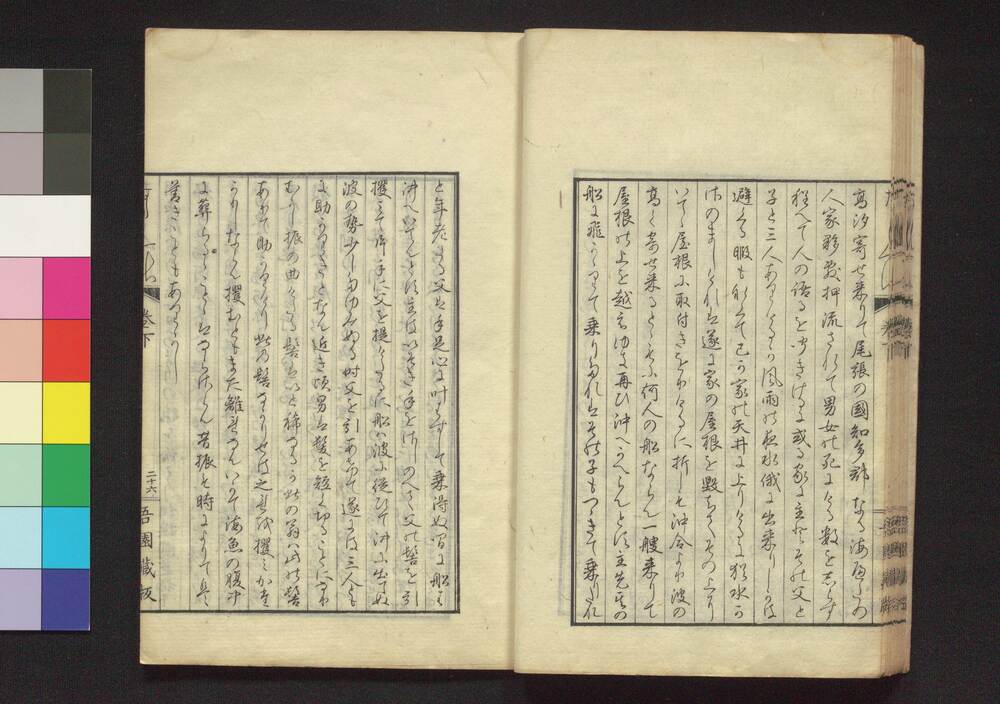 高汐寄せ来りて尾張の國知多郡なる海辺の
人家夥数押流されて男女の死にする数を知らず
程へて人の語るを聞きけるに或る家に主とその父と
子と三人ありけるが風雨の夜水俄に出来りしかば
避くる暇も無くて己が家の天井に上りけるに猶水か
さのましければ遂に家の屋根を毀ちてその上に
いでゝ屋根に取付きをりけるに折しも沖合より波の
高く寄せ来るとともに何人の船ならん一艘来りて
屋根の上を越えゆき再び沖へかへらんとす主先その
船に飛びうつりて乗りければその子もつゞきて乗りたれ
と年老たる父は手足心に叶はずして乗得ぬ間に船は
沖へいでんとす主はいそぎ手をさしのべて父の髻を引
攫みて片手に父を提げたるに船は波に従ひて沖に出でぬ
波の勢少しゆるみぬる時父を引あげて遂には三人とも
に助かりけるとなん近き頃男は髪を短く切ることになり
むかし振の曲げたる髻はいと稀なるが此の翁は此の髻
ありて助かりけり此の髻なかりせば之を攫みかた
かりしならん攫むともまた離るゝならんいかで海魚の腹中
に葬らるゝことなからん昔振も時によりては
善きこともありけり
巻下
二十六
吾園蔵板